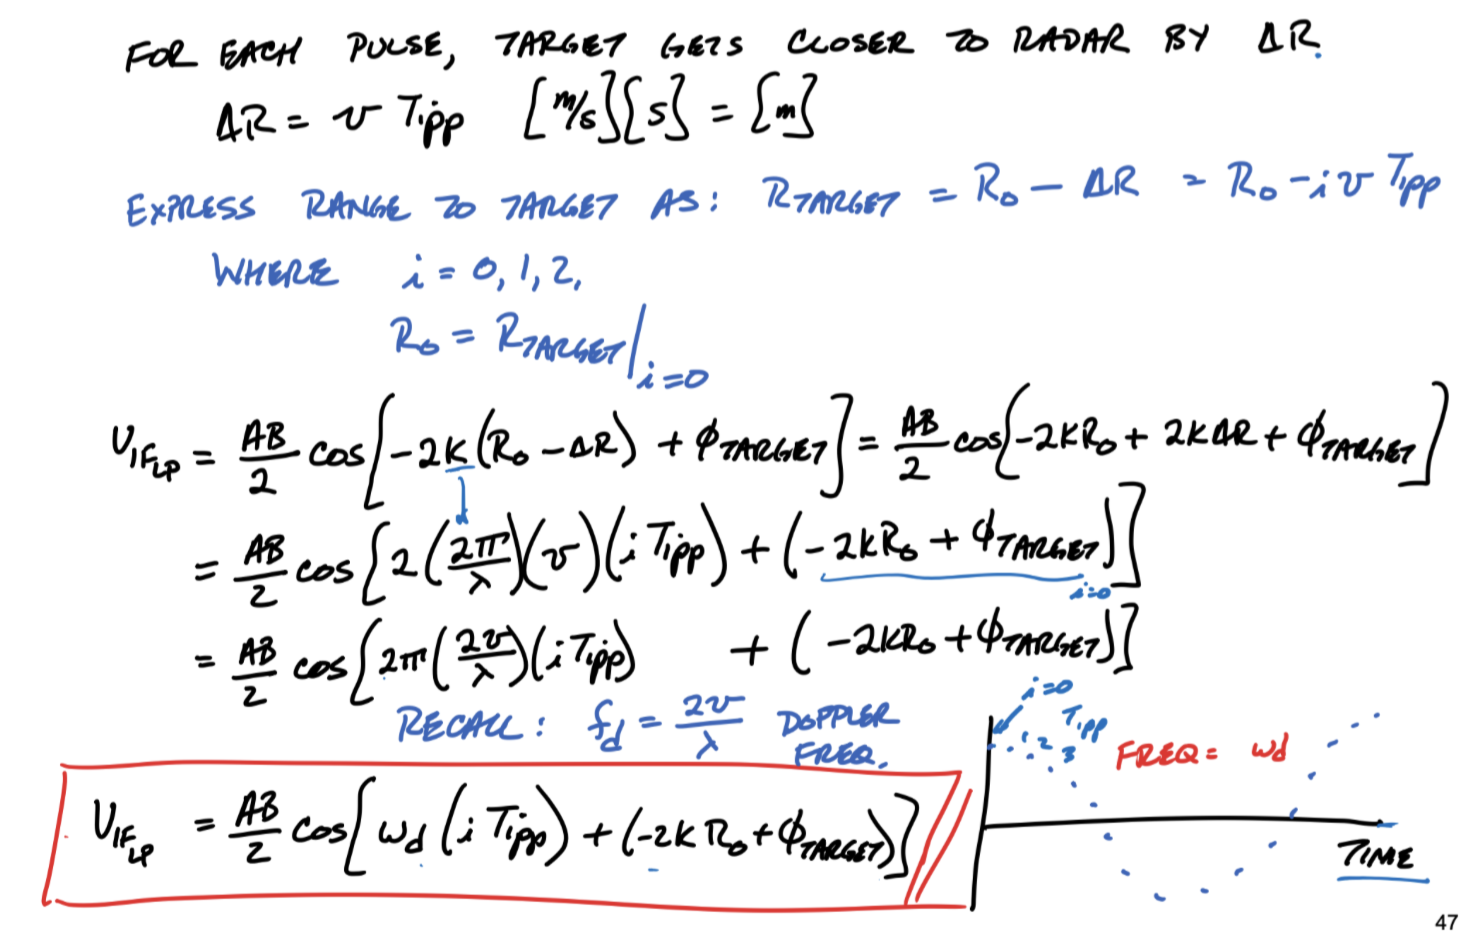 FOR EACH PULSE, TARGET GETS CLOSER TO RADAR BY ΔR.
ΔR = v Tipp [m/s][s] = [m]
EXPRESS RANGE TO TARGET AS: R_TARGET = R_0 - ΔR = R_0 - i v Tipp
WHERE i = 0, 1, 2,
R_0 = R_TARGET |_{i=0}
V_{IF_LP} = AB/2 cos[-2K(R_0 - ΔR) + φ_TARGET] = AB/2 cos[-2KR_0 + 2KΔR + φ_TARGET]
= AB/2 cos[2(2π/λ)(v)(i Tipp) + (-2KR_0 + φ_TARGET)]
i=0
= AB/2 cos[2π(2v/λ)(i Tipp) + (-2KR_0 + φ_TARGET)]
RECALL: f_d = 2v/λ DOPPLER FREQ.
V_{IF_LP} = AB/2 cos[ω_d (i Tipp) + (-2K R_0 + φ_TARGET)]
i=0
Tipp
1 2 3
FREQ = ω_d
TIME
47